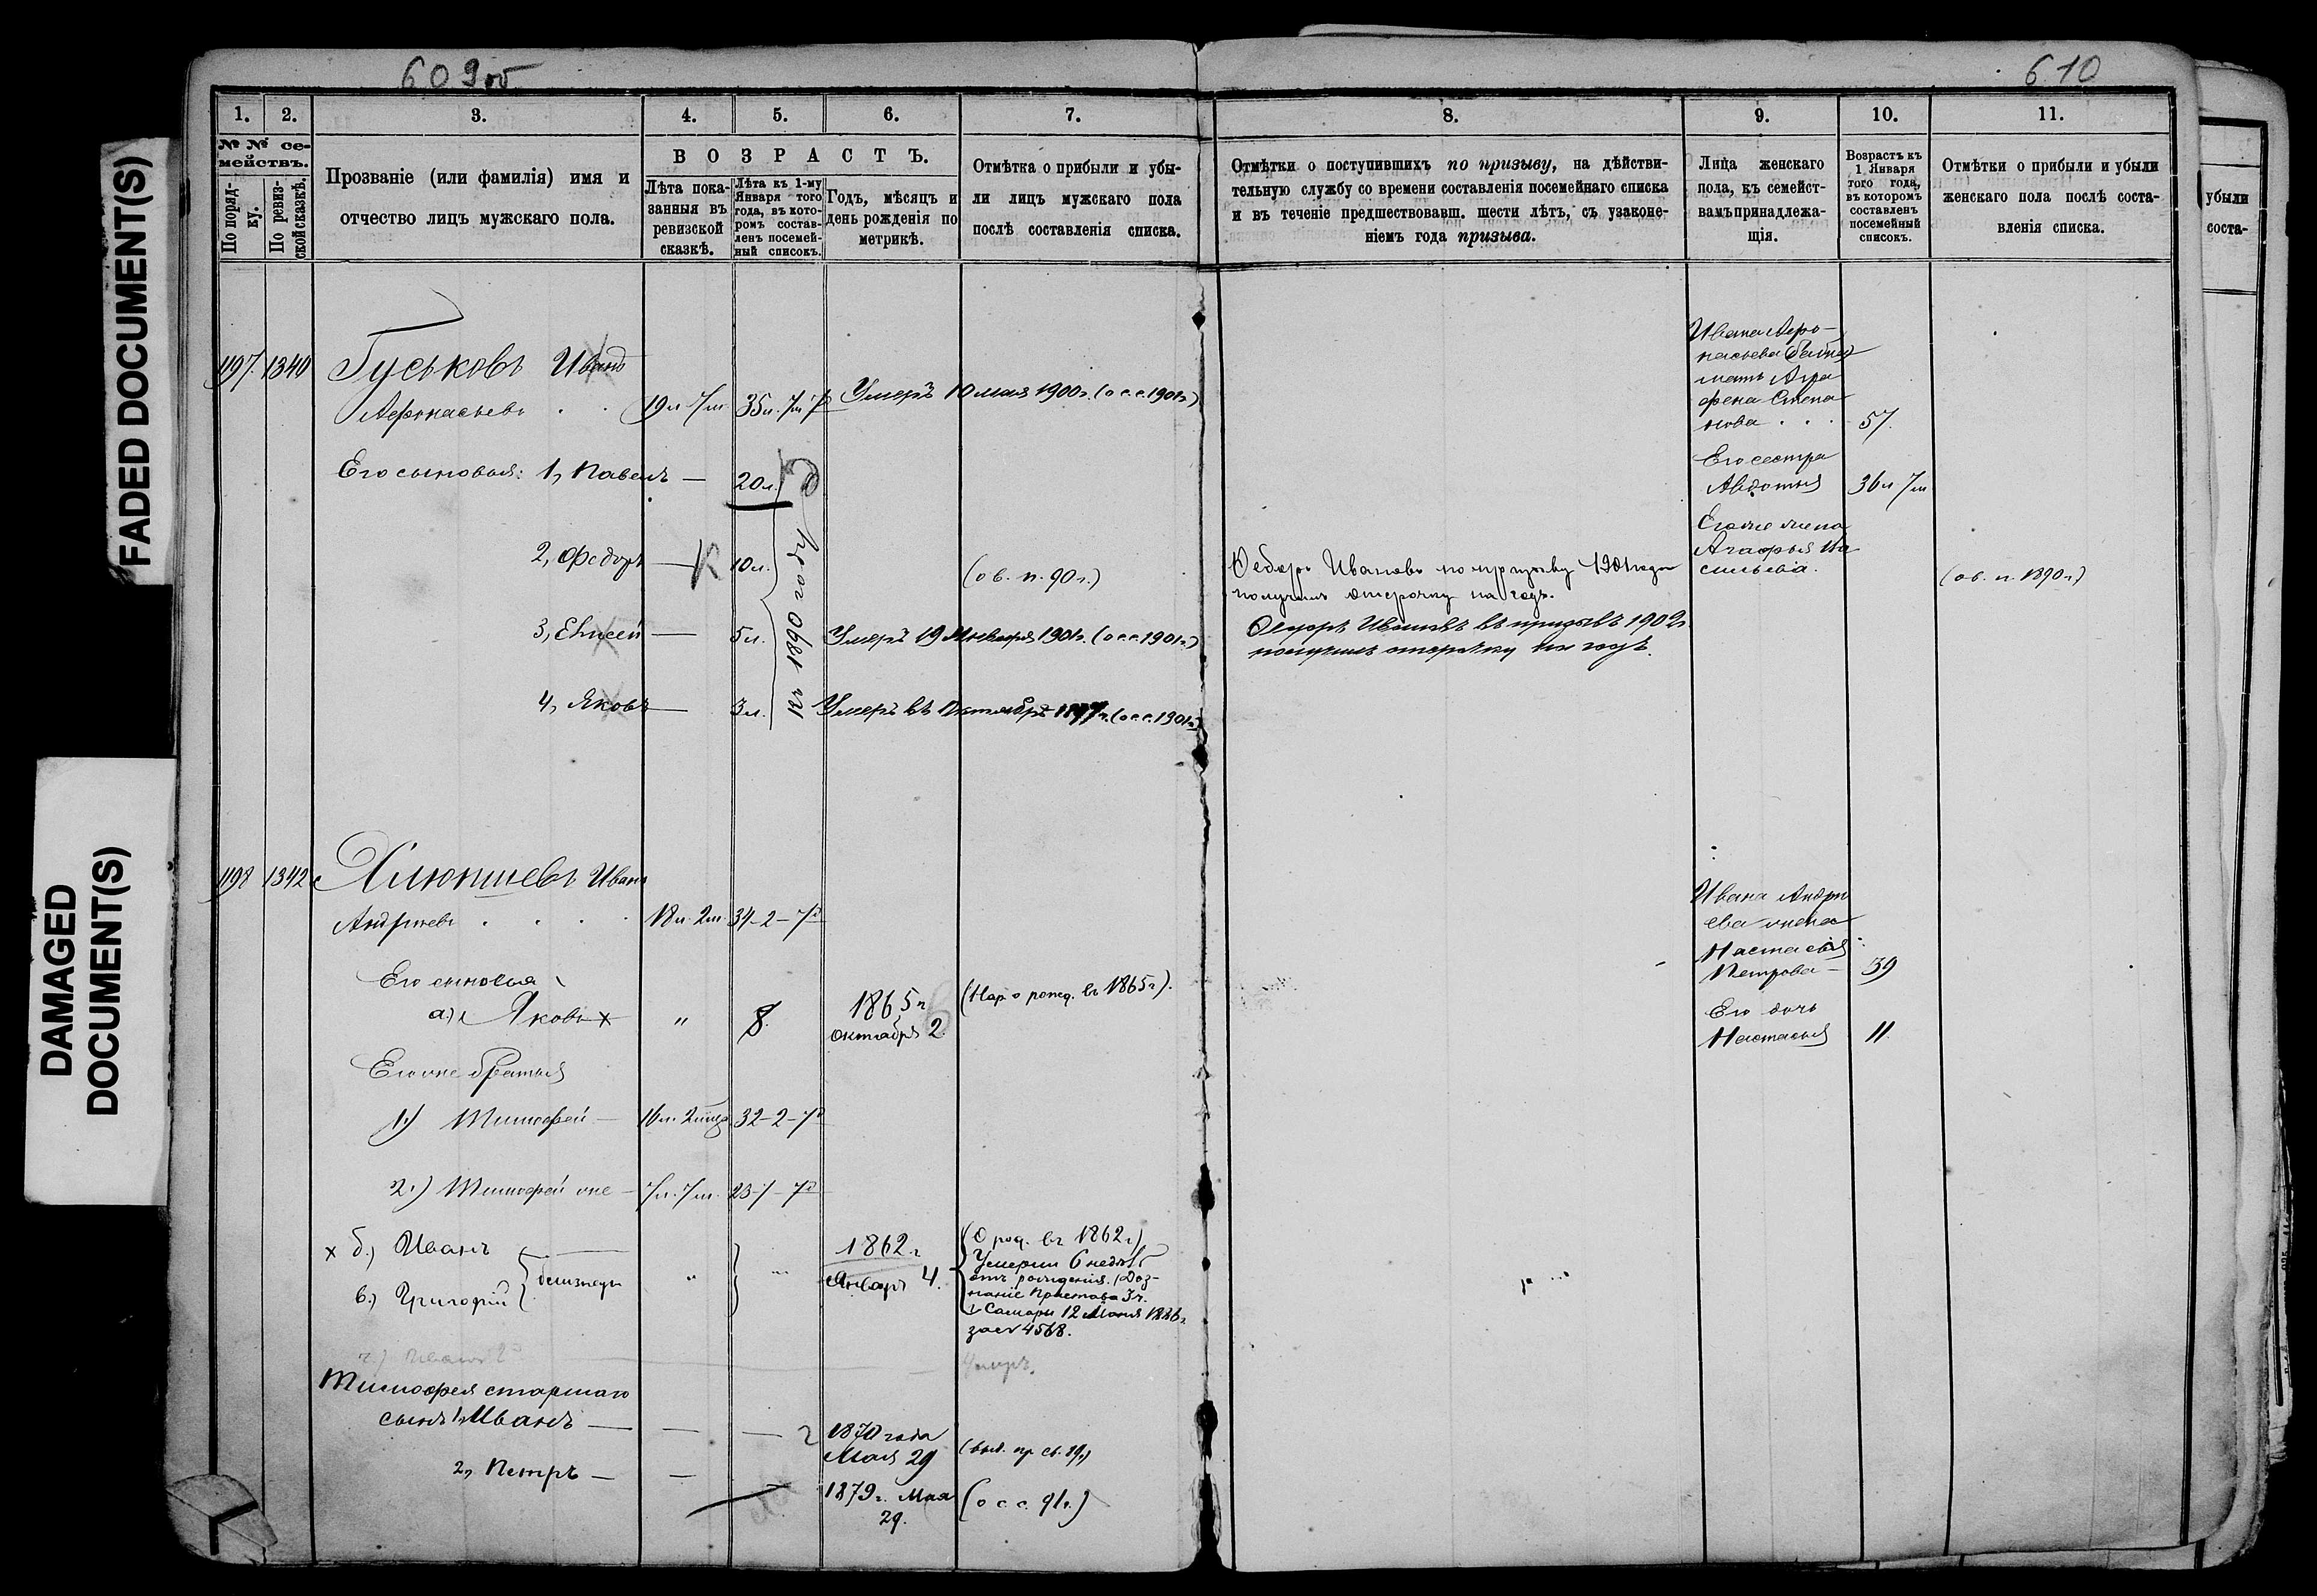 609об
610
FADED DOCUMENT(S)
DAMAGED
DOCUMENT(S)
1.
2.
3.
4.
5.
6.
7.
8.
9.
10.
11.
№ № се-
мействъ.
По поряд-
ку.
По ревиз-
ской сказкѣ.
Прозваніе (или фамилія) имя и
отчество лицъ мужскаго пола.
ВОЗРАСТЪ.
Лѣта пока-
занныя въ
ревизской
сказкѣ.
Лѣта къ 1-му
Января того
года, въ кото-
ромъ состав-
ленъ посемей-
ный списокъ.
Годъ, мѣсяцъ и
день рожденія по
метрикѣ.
Отмѣтка о прибыли и убы-
ли лицъ мужскаго пола
послѣ составленія списка.
Отмѣтки о поступившихъ по призыву, на дѣйстви-
тельную службу со времени составленія посемейнаго списка
и въ теченіе предшествовавш. шести лѣтъ, съ узаконе-
ніемъ года призыва.
Лица женскаго
пола, къ семейст-
вамъ принадлежа-
щія.
Возрастъ къ
1 Января
того года,
въ которомъ
составленъ
посемейный
списокъ.
Отмѣтки о прибыли и убыли
женскаго пола послѣ соста-
вленія списка.
убыли
соста-
1197. 1340 Гуськовъ Иванъ
Афонасьевъ . . 19л 7м 35л. 7м 7 Умеръ 10 мая 1900г. (о с.с. 1901г.)
Его сыновья: 1, Павелъ — 20л.
2, Федоръ — 10л. (о в. п. 90г.)
3, Елисей — 5л. Умеръ 19 Января 1901г. (о с.с. 1901г.)
4, Яковъ — 3л. Умеръ въ Октябрѣ (о с.с. 1901г.)
къ 1890 году
Федоръ Ивановъ по призыву 1901 года
получилъ отсрочку на годъ.
Федоръ Ивановъ въ призывъ 1902г
получилъ отсрочку на годъ.
Ивана Афо-
насьева
мать Агра
фена Степа
нова . . . 57.
Его сестра
Авдотья 36л 7м
Его же жена
Агафья Ва
сильева. (о в. п. 1890г.)
1198 1342 Иванъ
Андреевъ . . . . 18л. 2м. 34-2-7д
Его сыновья
а) Яковъ х " 8. 1865г
октября 2. (Мар. о рожд. въ 1865г.).
Его же братья
1) Тимофей — 16л. 2мца 32-2-7д
2.) Тимофей же — 7л. 7м. 23-7-7д
х б.) Иванъ
в.) Григорій близнецы
1862г
Январь 4.
(О род. въ 1862г.)
Умерли 6 недѣль
отъ рожденія. (Доз-
наніе Пристава 3 ч.
г. Самары 12 1886г.
за № 4568.
г.) Иванъ 2й Умеръ.
Тимофея старшаго
сынъ 1, Иванъ — — — 1870 года
Мая 29 (вып. пр св. 19г.)
2, Петръ — — 1879г. Мая
29. (о с с. 91г.)
Ивана Андре
ева жена
Настасья
Петрова — 39
Его дочь
Настасья 11.